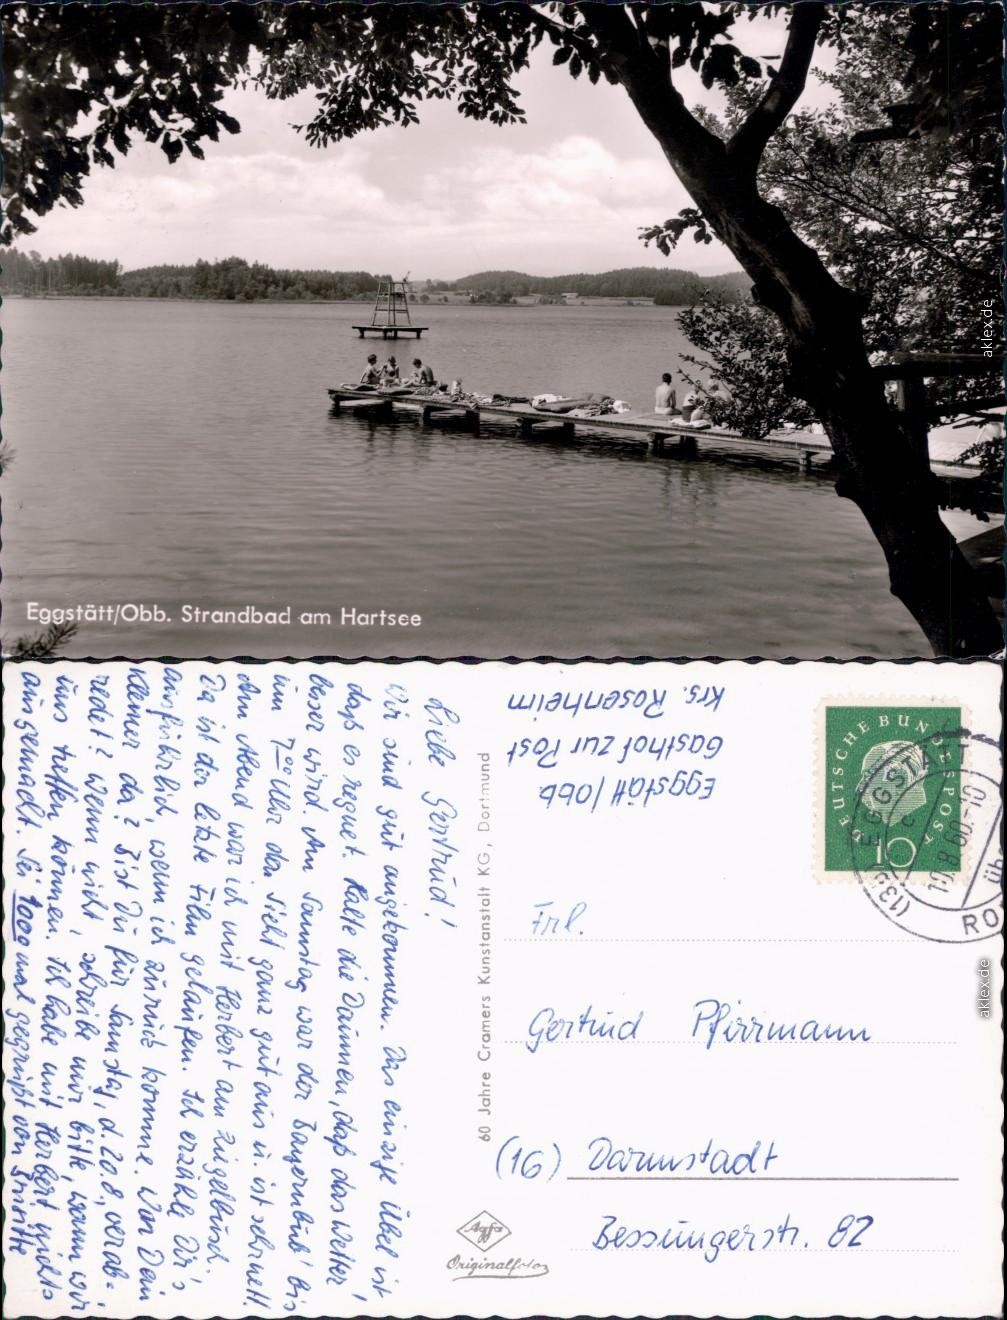 Eggstätt/Obb. Strandbad am Hartsee
aklex.de
Liebe Gertrud!
Wir sind gut angekommen. Das einzige Übel ist
daß es regnet. Halte die Daumen, daß das Wetter
besser wird. Am Samstag war der
im 7°° Uhr da. Sieht ganz gut aus u. ist schnell.
Am Abend war ich mit Herbert am
Da ist der letzte Film gelaufen. Ich erzähle Dir's
ausführlich, wenn ich zurück komme. War Dein
Kleiner da? Bist Du für Samstag, d. 20.8, verab-
redet? Wenn nicht schreibe mir bitte, wann wir
uns treffen können. Ich habe mit Herbert nichts
ausgemacht. Sei 1000 mal gegrüßt von
Eggstätt/Obb.
Gasthof zur Post
Krs. Rosenheim
60 Jahre Cramers Kunstanstalt KG, Dortmund
DEUTSCHE BUNDESPOST
10
(13b) EGGSTÄTT
c
10.8.60.-10
üb
RO
Frl.
Gertrud Pfirrmann
(16) Darmstadt
Bessungerstr. 82
Agfa
Originalfoto
aklex.de